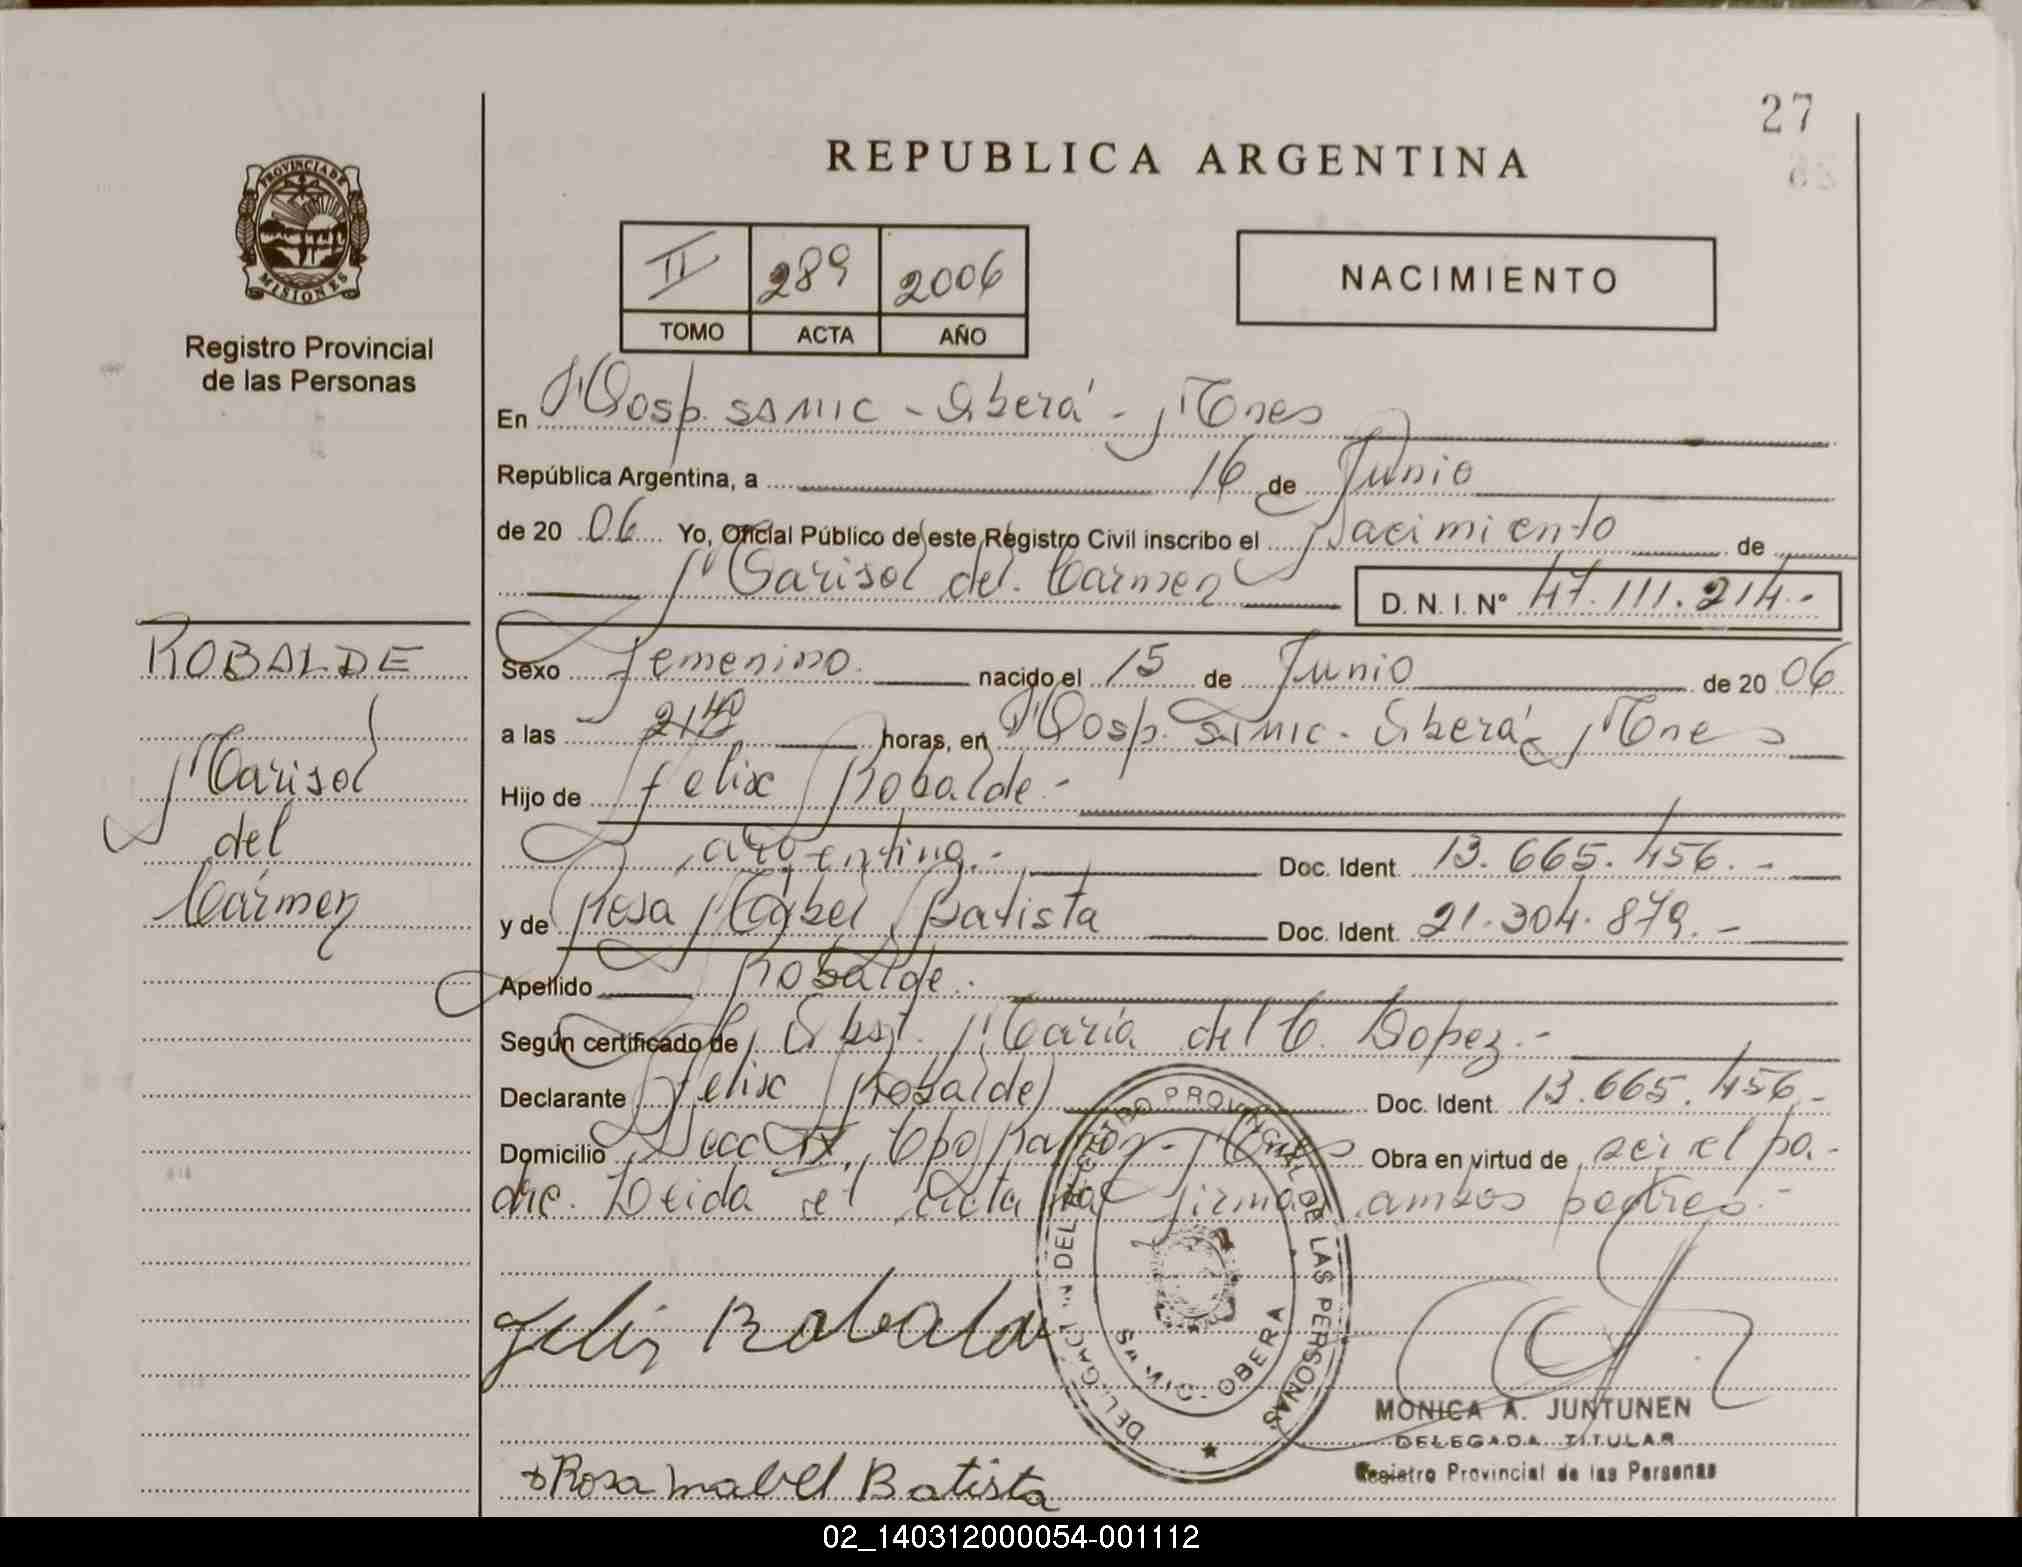 27
REPUBLICA ARGENTINA
PROVINCIA DE
MISIONES
Registro Provincial
de las Personas
II 289 2006
TOMO ACTA AÑO
NACIMIENTO
En Hosp. SAMIC - Oberá - Mnes
República Argentina, a 16 de Junio
de 20 06 Yo, Oficial Público de este Registro Civil inscribo el Nacimiento de
Marisol del Carmen D. N. I. N° 47.111.214.-
ROBALDE
Marisol
del
Cármen
Sexo femenino. nacido el 15 de Junio de 20 06
a las 21 40 horas, en Hosp. SAMIC - Oberá - Mnes
Hijo de Felix Robalde.-
argentina.- Doc. Ident. 13.665.456.-
y de Rosa Mabel Batista Doc. Ident. 21.304.879.-
Apellido Robalde.
Según certificado de Obst. María del C. Lopez.-
Declarante Felix Robalde Doc. Ident. 13.665.456.-
Domicilio Secc IX, Cpo Ramón - Mnes Obra en virtud de ser el pa-
dre. Leida el acta la firman ambos padres.-
DELEGACION DEL REGISTRO PROVINCIAL DE LAS PERSONAS
SAMIC - OBERA
Felix Robalde
Rosa Mabel Batista
MONICA A. JUNTUNEN
DELEGADA TITULAR
Registro Provincial de las Personas
02_140312000054-001112